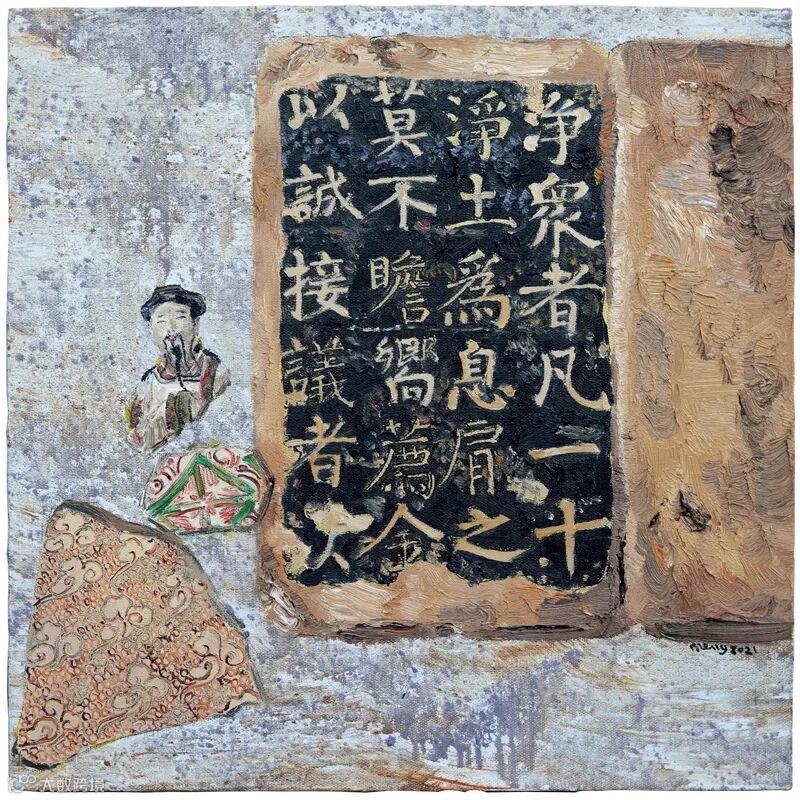 浄衆者凡一十
淨土爲息肩之
莫不瞻嚮薦金
以誠接議者
Meng 2021
大数跨境